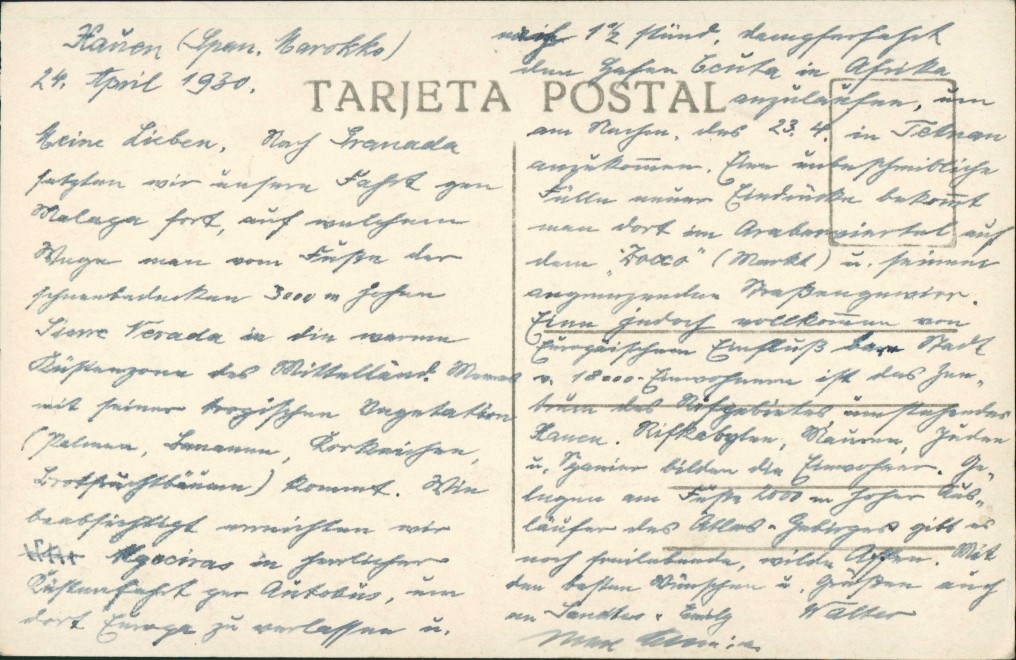 Xauen (Span. Marokko)
24. April 1930.
TARJETA POSTAL
Meine Lieben, Nach Granada
setzten wir unsere Fahrt gen
Malaga fort, auf welchem
Wege man vom Fuße der
schneebedeckten 3000 m hohen
Sierra Nevada in die warme
Küstenzone des Mittelländ. Meeres
mit seiner tropischen Vegetation
(Palmen, Bananen, Korkeichen,
Brotfruchtbäumen) kommt. Wie
beabsichtigt erreichten wir
Algeciras in herrlicher
Küstenfahrt per Autobus, um
dort Europa zu verlassen u.
nach 1½ stünd. Dampferfahrt
den Hafen Ceuta in Afrika
anzulaufen, um
am Nachm. des 23.4. in Tetuan
anzukommen. Eine unbeschreibliche
Fülle neuer Eindrücke bekommt
man dort im Araberviertel auf
dem "Zocco" (Markt) u. seinem
angrenzenden Straßengewirr.
Eine jedoch vollkommen von
Europäischem Einfluß bare Stadt
v. 18000 Einwohnern ist das Zen-
trum des Rifgebietes umstehendes
Xauen. Rifkabylen, Mauren, Juden
u. Spanier bilden die Einwohner. Ge-
legen am Fuße 2000 m hoher Aus-
läufer des Atlas-Gebirges gibt es
noch freilebende, wilde Affen. Mit
den besten Wünschen u. Grüßen auch
an Emily Walter